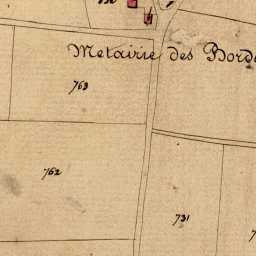 Metairie des Borde
763
762
731